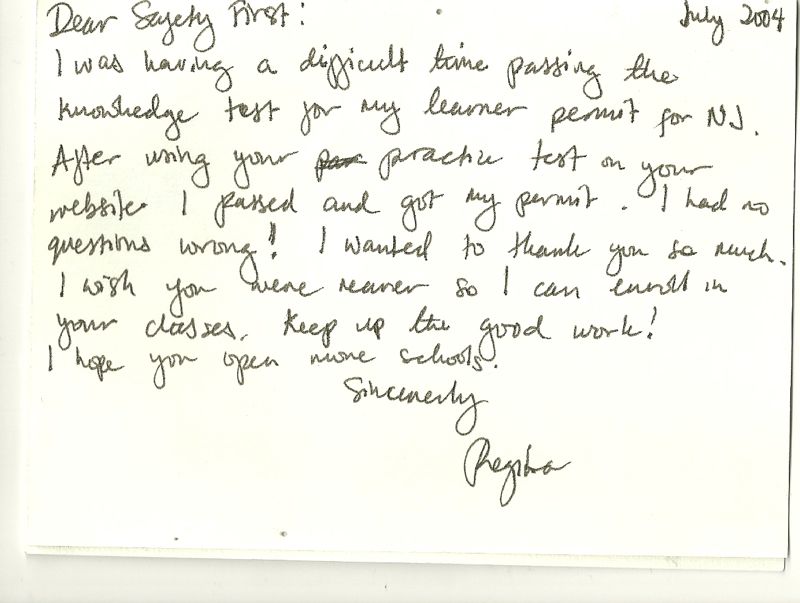 Dear Safety First: July 2004
I was having a difficult time passing the
knowledge test for my learner permit for NJ.
After using your practice test on your
website I passed and got my permit. I had no
questions wrong! I wanted to thank you so much.
I wish you were nearer so I can enroll in
your classes. Keep up the good work!
I hope you open more schools.
Sincerely
Regina